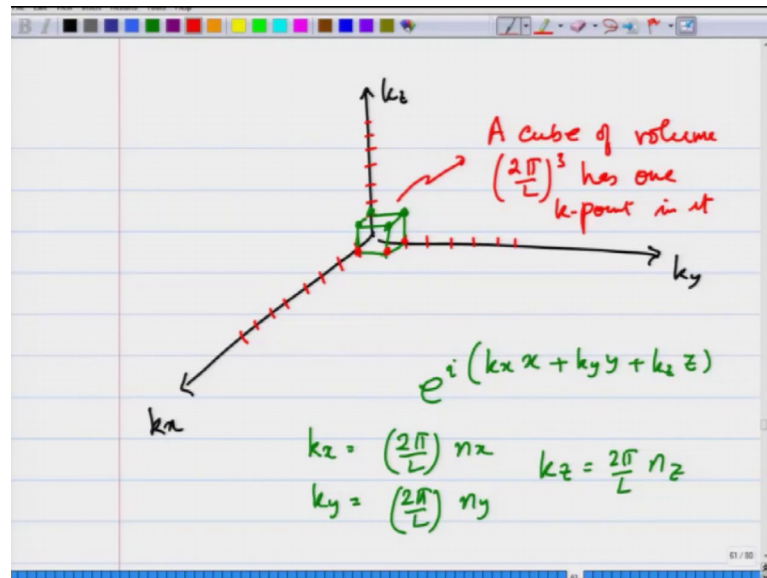 B I
kz
A cube of volume
(2π/L)³ has one
k-point in it
ky
e^i(kx x + ky y + kz z)
kx
kx = (2π/L) nx
kz = 2π/L nz
ky = (2π/L) ny
61/80